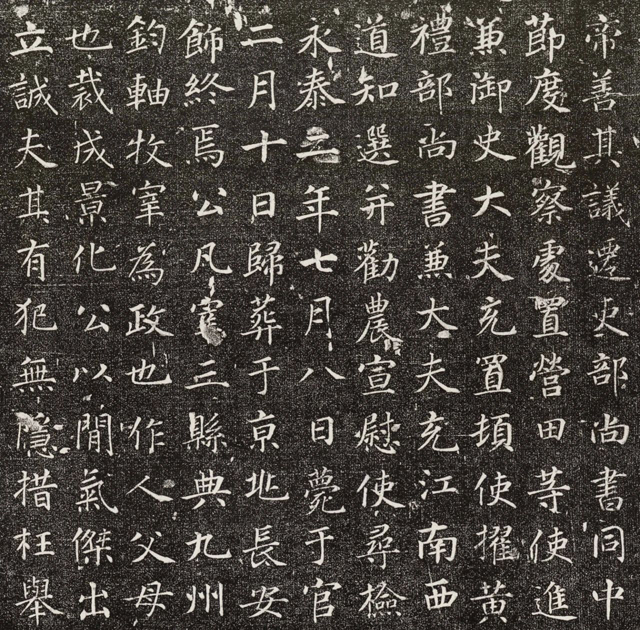 帝善其議遷吏部尚書同中
節度觀察處置營田等使進
兼御史大夫充置頓使擢黃
禮部尚書兼大夫充江南西
道知選并勸農宣慰使尋檢
永泰二年七月八日薨于官
二月十日歸葬于京兆長安
飾終焉公凡宰三縣典九州
鈞軸牧宰為政也作人父母
也裁成景化公以閒氣傑出
立誠夫其有犯無隱措枉舉